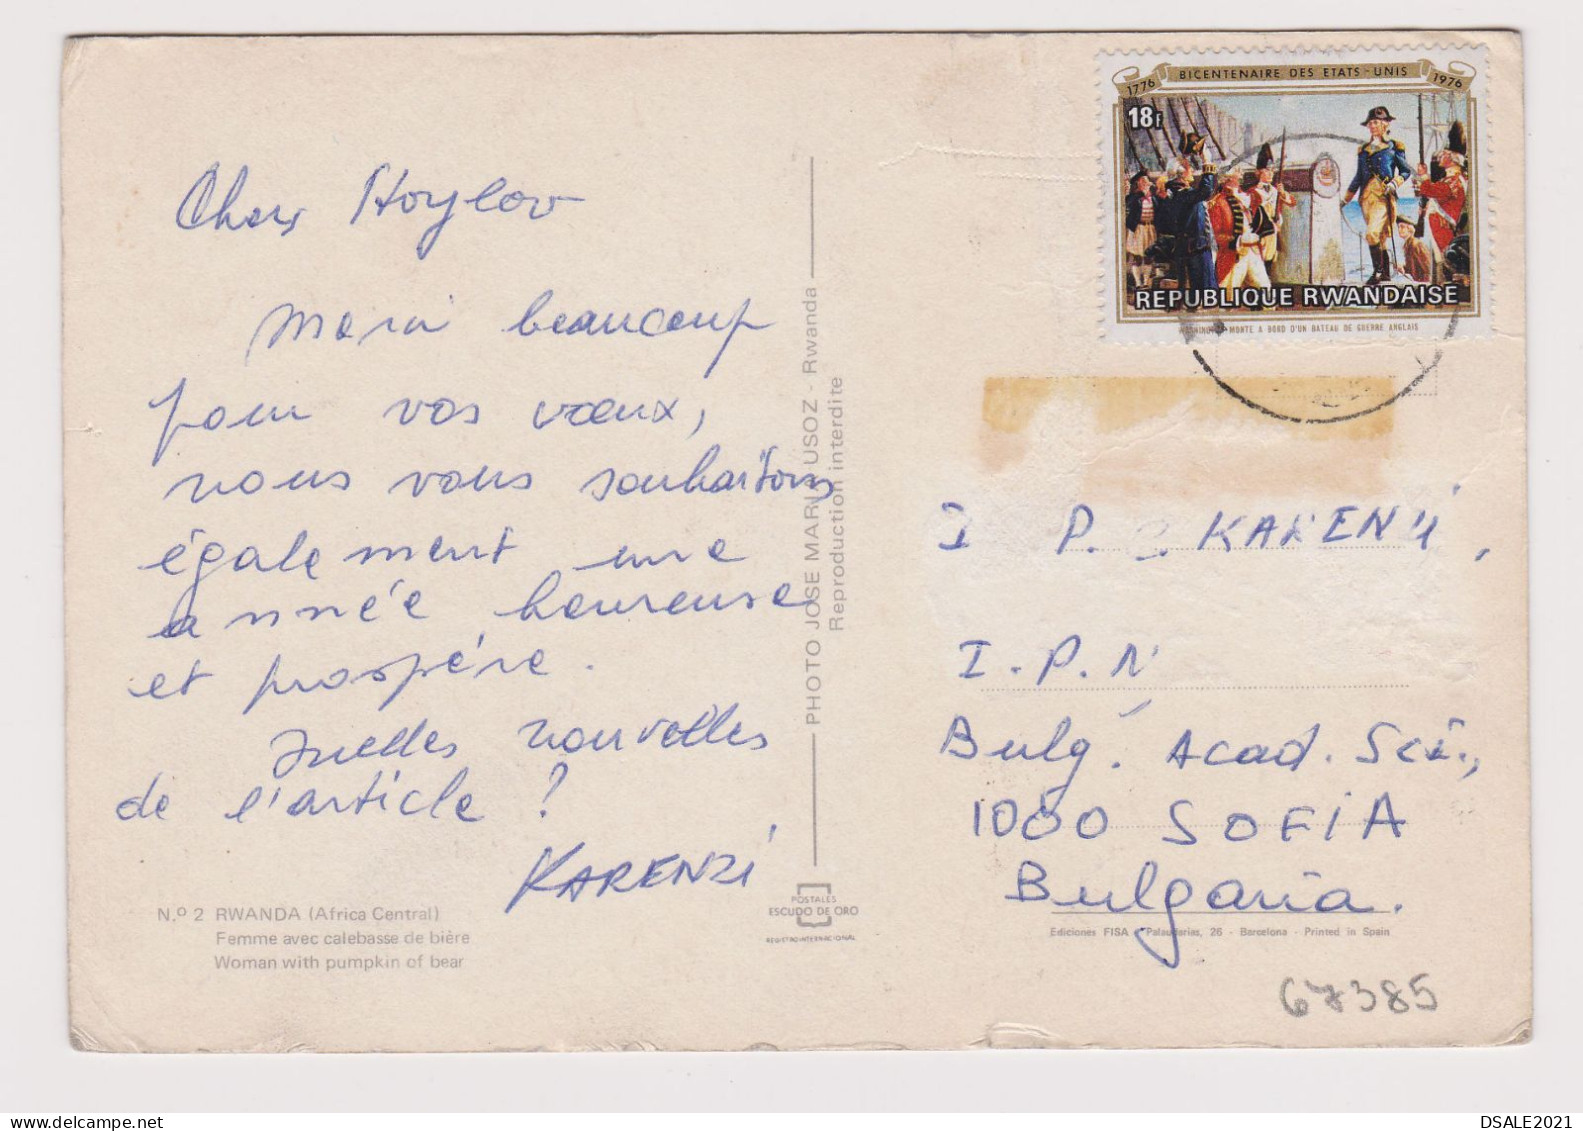 BICENTENAIRE DES ETATS-UNIS
1776
1976
18F
REPUBLIQUE RWANDAISE
MONTE A BORD D'UN BATEAU DE GUERRE ANGLAIS
Cher Hoylov
Merci beaucoup
pour vos vœux,
nous vous souhaitons
également une
année heureuse
et prospère.
Quelles nouvelles
de l'article ?
KARENZI
Nº 2 RWANDA (Africa Central)
Femme avec calebasse de bière
Woman with pumpkin of bear
PHOTO JOSE MARI USOZ - Rwanda
Reproduction interdite
POSTALES
ESCUDO DE ORO
REGISTRO INTERNACIONAL
I P. KARENZI,
I.P.N
Bulg. Acad. Sci.,
1000 SOFIA
Bulgaria.
Ediciones FISA - Palaudarias, 26 - Barcelona - Printed in Spain
67385
DSALE2021